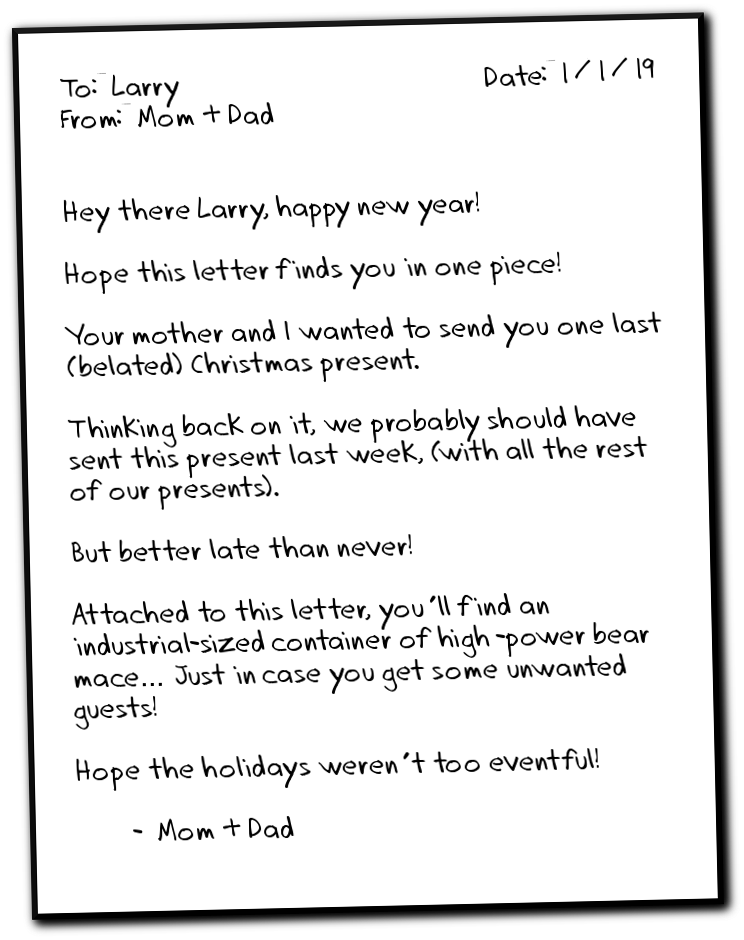 To: Larry
Date: 1/1/19
From: Mom + Dad
Hey there Larry, happy new year!
Hope this letter finds you in one piece!
Your mother and I wanted to send you one last
(belated) Christmas present.
Thinking back on it, we probably should have
sent this present last week, (with all the rest
of our presents).
But better late than never!
Attached to this letter, you'll find an
industrial-sized container of high-power bear
mace... Just in case you get some unwanted
guests!
Hope the holidays weren't too eventful!
- Mom + Dad